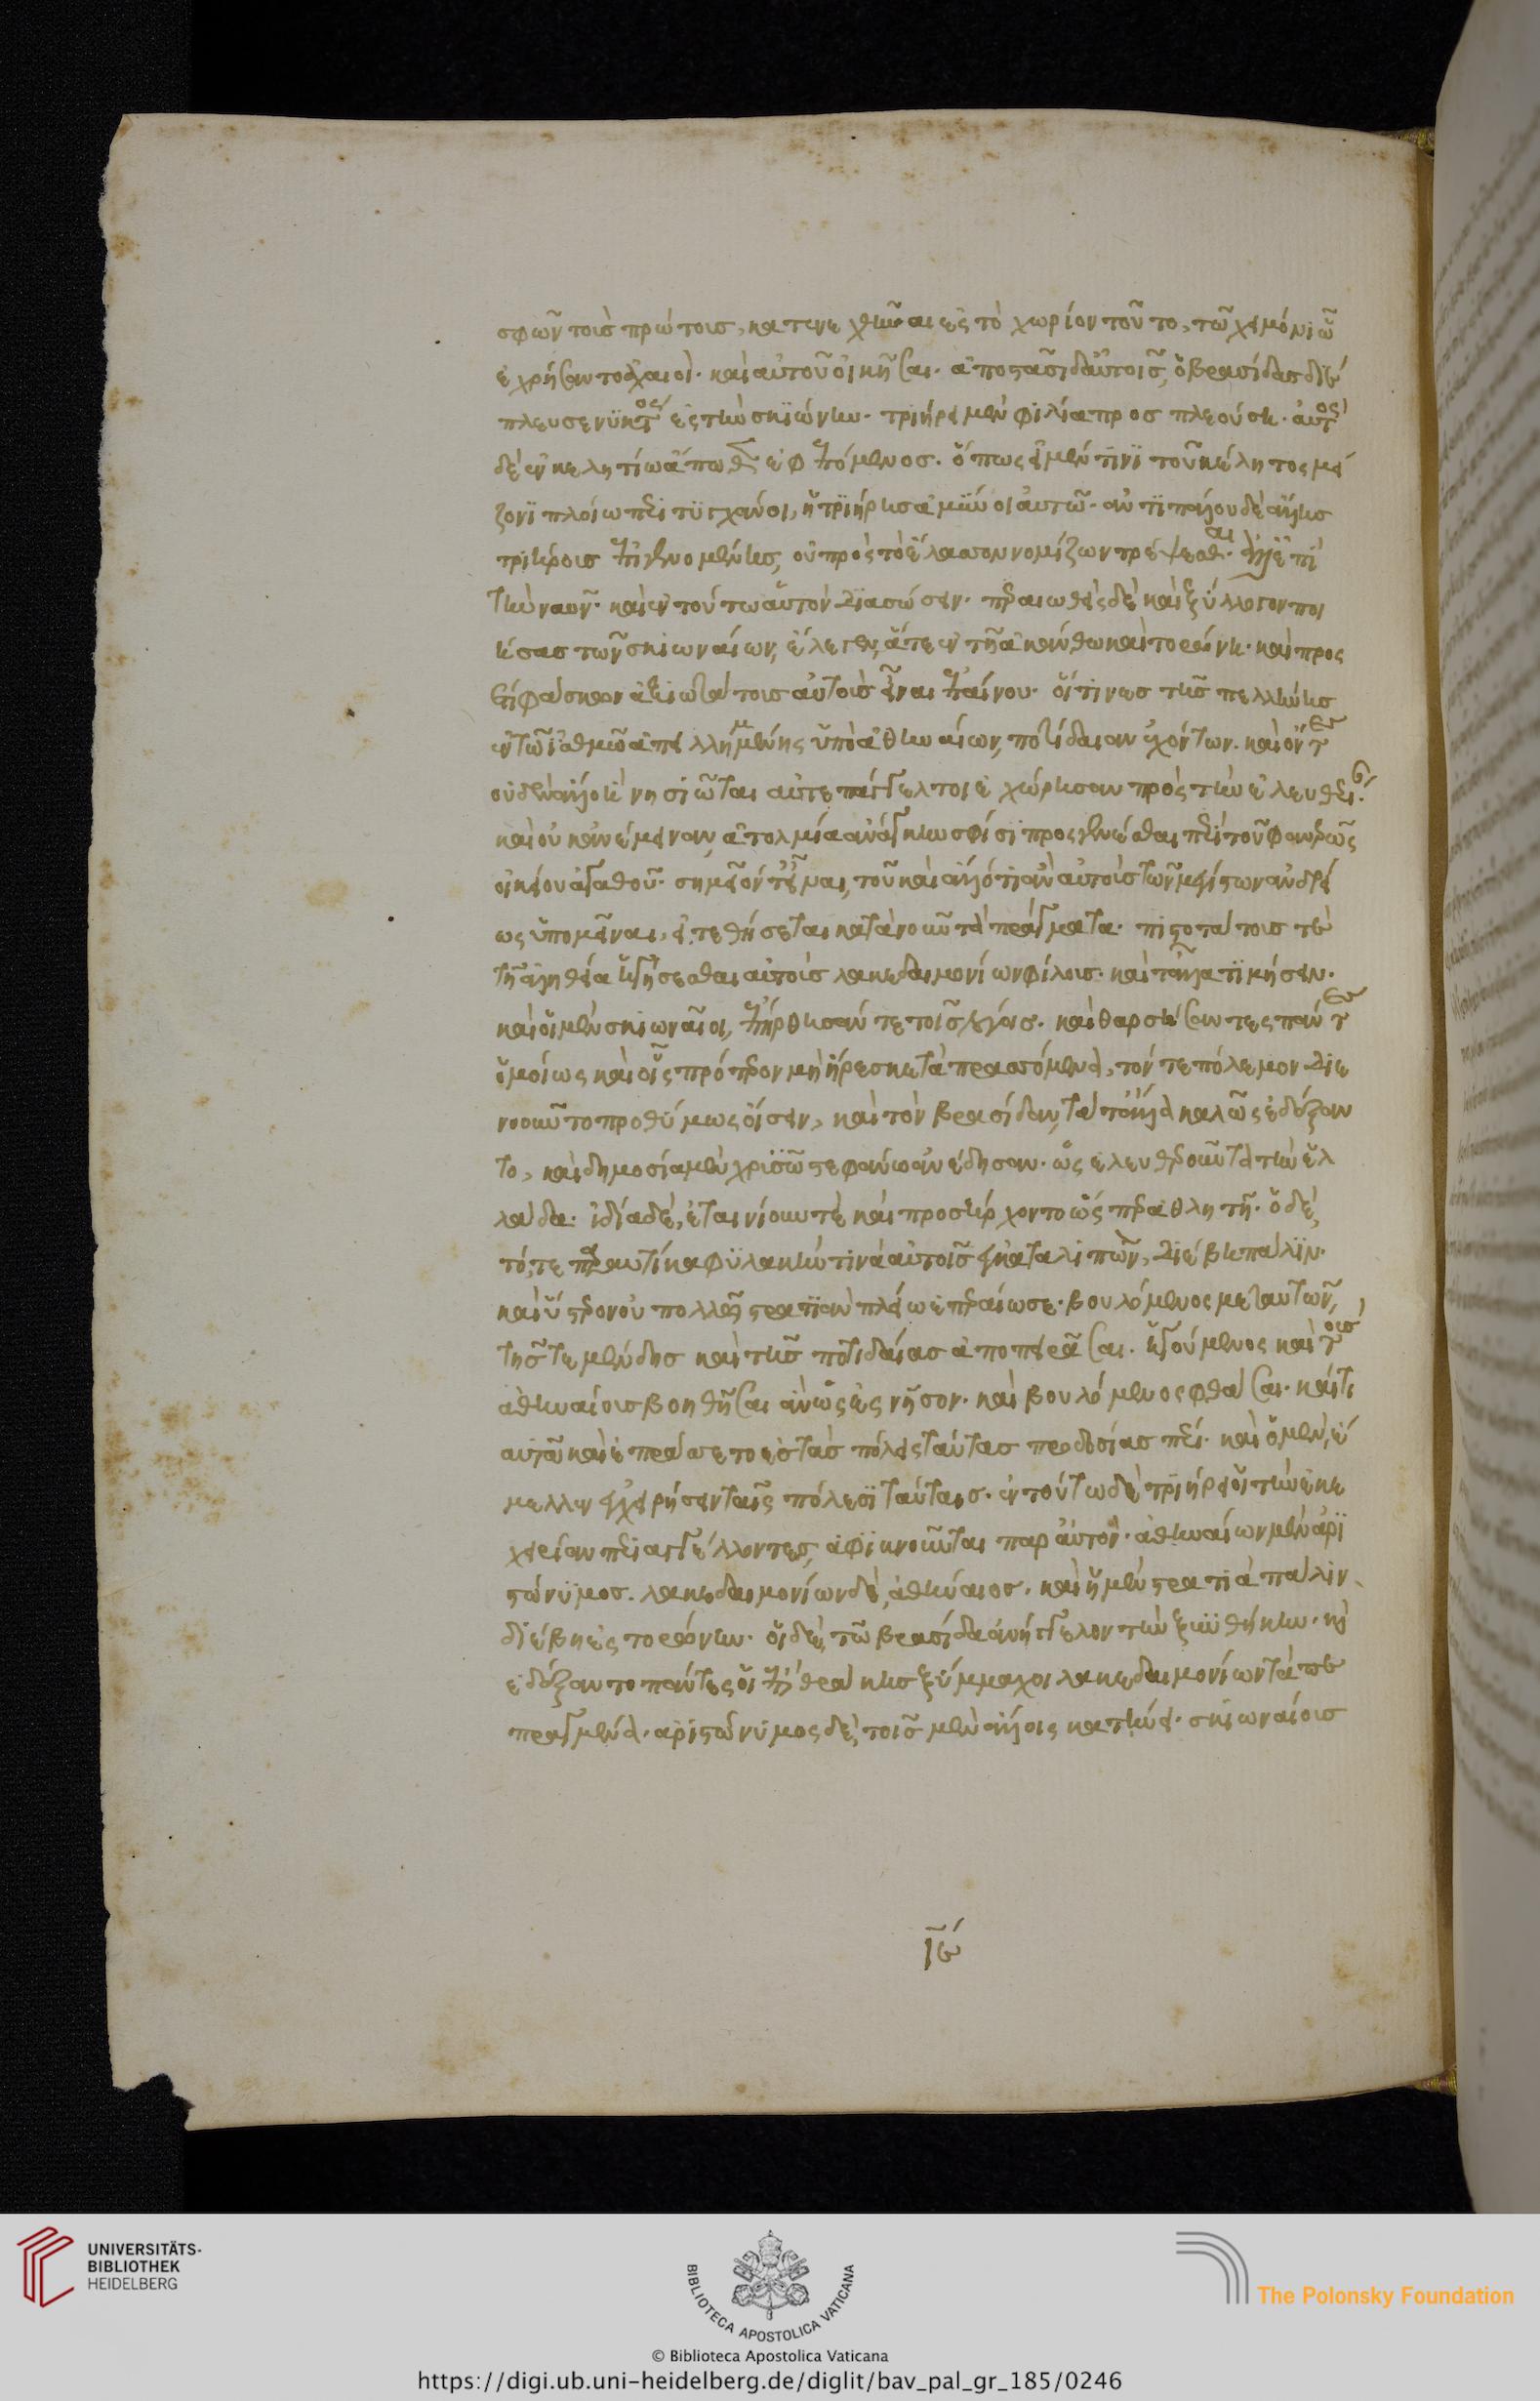 σφῶν τοὶς πρώτοις, κατενεχθῆναι ἐς τὸ χωρίον τοῦτο, τῶ χειμόνι ὦ
ἐχρήσαντο ἀχαιοὶ· καὶ αὐτοῦ οἰκῆσαι· ἀποστᾶσι δ' αὐτοῖς, ὁ βρασίδας διέ
πλευσε νϋκτος ἐς τὴν σκϊώνην· τριήρει μὲν φϊλία προσπλεούση· αὐτος
δὲ ἐν κελητίω ἄπωθεν ἐφεπόμενος· ὅπως εἰ μέν τϊνϊ τοῦ κέλητος μεί
ζονϊ πλοίω περιτϋγχάνοι, ἡ τριήρης ἀμϋνοι αὐτῶ· ἀντϊπάλου δὲ ἄλλης
τριήροις ἐπιγενομένης, οὐ πρὸς τὸ ἔλασσον νομίζων τρέψεσθαι· ἀλλ' ἐπὶ
τὴν ναυν· καὶ ἐν τούτω αὐτὸν διασώσειν· περαιωθεὶς δὲ καὶ ξύλλογον ποι
ήσας τῶν σκιωναίων, ἔλεγεν, ἅ τε ἐν τῆ ἀκάνθω καὶ τορώνη· καὶ προς
ἔτι φάσκων ἀξιωτάτοις αὐτοὶς εἶναι ἐπαίνου· οἵτινες τῆς πελλήνης
ἐν τῶ ἰσθμῶ ἀπειλλημμένης ὑπὸ ἀθηναίων, ποτίδαιαν ἐχόντων· καὶ ὄντες
οὐδὲν ἄλλο ἢ νησιῶται αὐτεπάγγελτοι ἐχώρησαν πρὸς τὴν ἐλευθερίαν·
καὶ οὐκ ἀνέμειναν, ἀτολμία ἀνάγκην σφίσι προσγενέσθαι περὶ τοῦ φανερῶς
οἰκείου ἀγαθοῦ· σημεῖόν τ' εἶναι, τοῦ καὶ ἄλλό τι ἂν αὐτοὶς τῶν μεγίστων ἀνδρεί
ως ὑπομεῖναι, εἰ τεθήσεται κατὰ νοῦν τὰ πράγματα· πιστοτάτοις τὲ
τῆ ἀληθεία ἡγήσεσθαι αὐτοὶς λακεδαιμονίων φίλοις· καὶ τἄλλα τϊμήσειν·
καὶ οἱ μὲν σκιωναῖοι, ἐπήρθησάν τε τοῖς λόγοις· καὶ θαρσήσαντες πάντες
ὁμοίως καὶ οἷς πρότερον μὴ ἤρεσκε τὰ πρασσόμενα, τόν τε πόλεμον διε
νοοῦντο προθύμως οἴσειν, καὶ τὸν βρασίδαν, τά τ' ἄλλα καλῶς ἐδέξαν
το, καὶ δημοσία μὲν χρϊσῶ στεφάνω ἀνέδησαν· ὡς ἐλευθεροῦντα τὴν ἑλ
λάδα· ἰδία δὲ, ἐταινίουν τὲ καὶ προσήρχοντο ὥσπερ ἀθλητῆ· ὁ δὲ,
τό, τε παραυτίκα φϋλακήν τινὰ αὐτοῖς ἐγκαταλιπὼν, διέβη πάλϊν·
καὶ ὕστερον οὐ πολλῶ στρατϊὰν πλείω ἐπεραίωσε· βουλόμενος μετ' αὐτῶν,
τῆς τε μένδης καὶ τῆς πότιδαίας ἀποπειρᾶσαι· ἡγούμενος καὶ τοις
ἀθηναίοις βοηθῆσαι ἂν ὡς ἐς νῆσον· καὶ βουλόμενος φθάσαι· καί τι
αὐτῶ καὶ ἐπράσσετο ἐς τὰς πόλεις ταύτας προδοσίας πέρι· καὶ ὁ μὲν, ἔ
μελλεν ἐγχειρήσειν ταῖς πόλεσϊ ταύταις· ἐν τούτω δὲ τριήρει οἱ τὴν ἐκε
χειρίαν περιαγγέλλοντες, ἀφϊκνοῦνται παρ' αὐτόν· ἀθηναίων μὲν ἀρϊ
στώνϋμος· λακεδαιμονίων δὲ, ἀθήναιος· καὶ ἡ μὲν στρατιὰ πάλιν
διέβη ἐς τορώνην· οἱ δὲ, τῶ βρασίδα ἀνήγγελον τὴν ξυνθήκην· καὶ
ἐδέξαντο πάντες οἱ ἐπὶ θράκης ξύμμαχοι λακεδαιμονίων τὰ πε
πραγμένα· ἀρϊστώνϋμος δὲ, τοῖς μὲν ἄλλοις κατήνει· σκιωναίοις
ιε
UNIVERSITÄTS-
BIBLIOTHEK
HEIDELBERG
BIBLIOTECA APOSTOLICA VATICANA
The Polonsky Foundation
© Biblioteca Apostolica Vaticana
https://digi.ub.uni-heidelberg.de/diglit/bav_pal_gr_185/0246